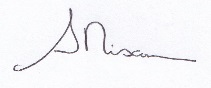 S Nixon